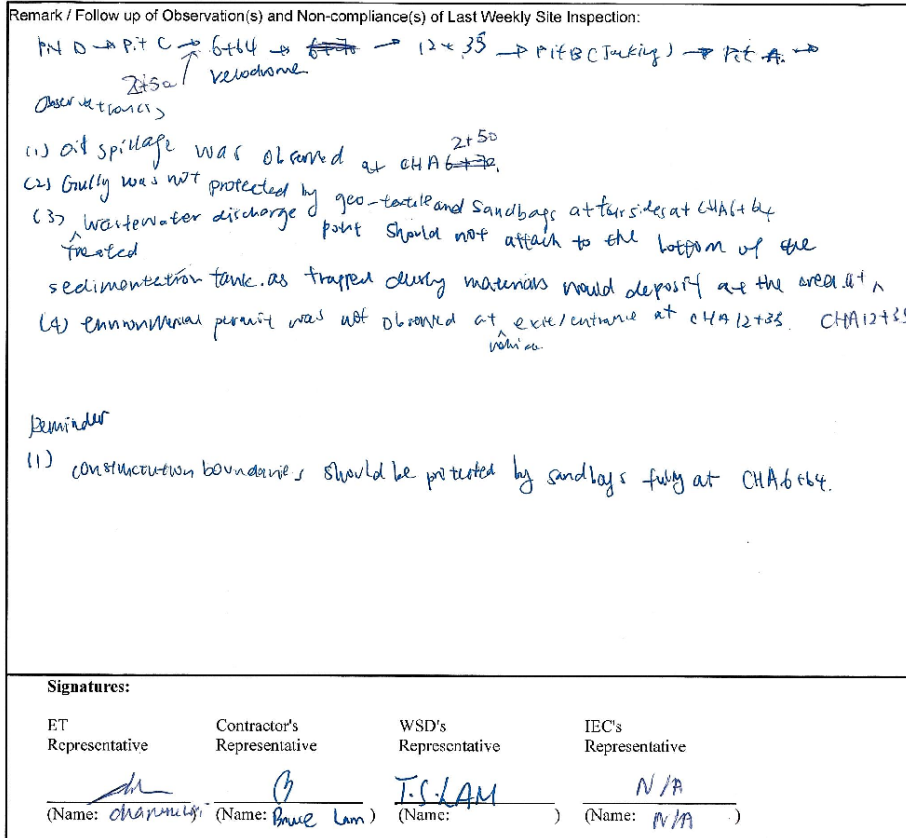 Remark / Follow up of Observation(s) and Non-compliance(s) of Last Weekly Site Inspection:
D → Pit C → 6+64 → 6+70 → 12+35 → Pit B (Jacking) → Pit A. →
2+50 velodrome
Observation(s)
2+50
(1) Oil spillage was observed at CHA 6+70.
(2) Gully was not protected by geo-textile and sandbags at four sides at CHA6+64
(3) wastewater discharge point should not attach to the bottom of the
treated
sedimentation tank. as trapped materials would deposit at the area. at
(4) environmental permit was not observed at exit/entrance at CHA12+35. CHA12+35
vehicle
Reminder
(1) construction boundaries should be protected by sandbags fully at CHA6+64.
Signatures:
ET Contractor's WSD's IEC's
Representative Representative Representative Representative
T.S.LAM N/A
(Name: (Name: Bruce Lam) (Name: ) (Name: N/A )